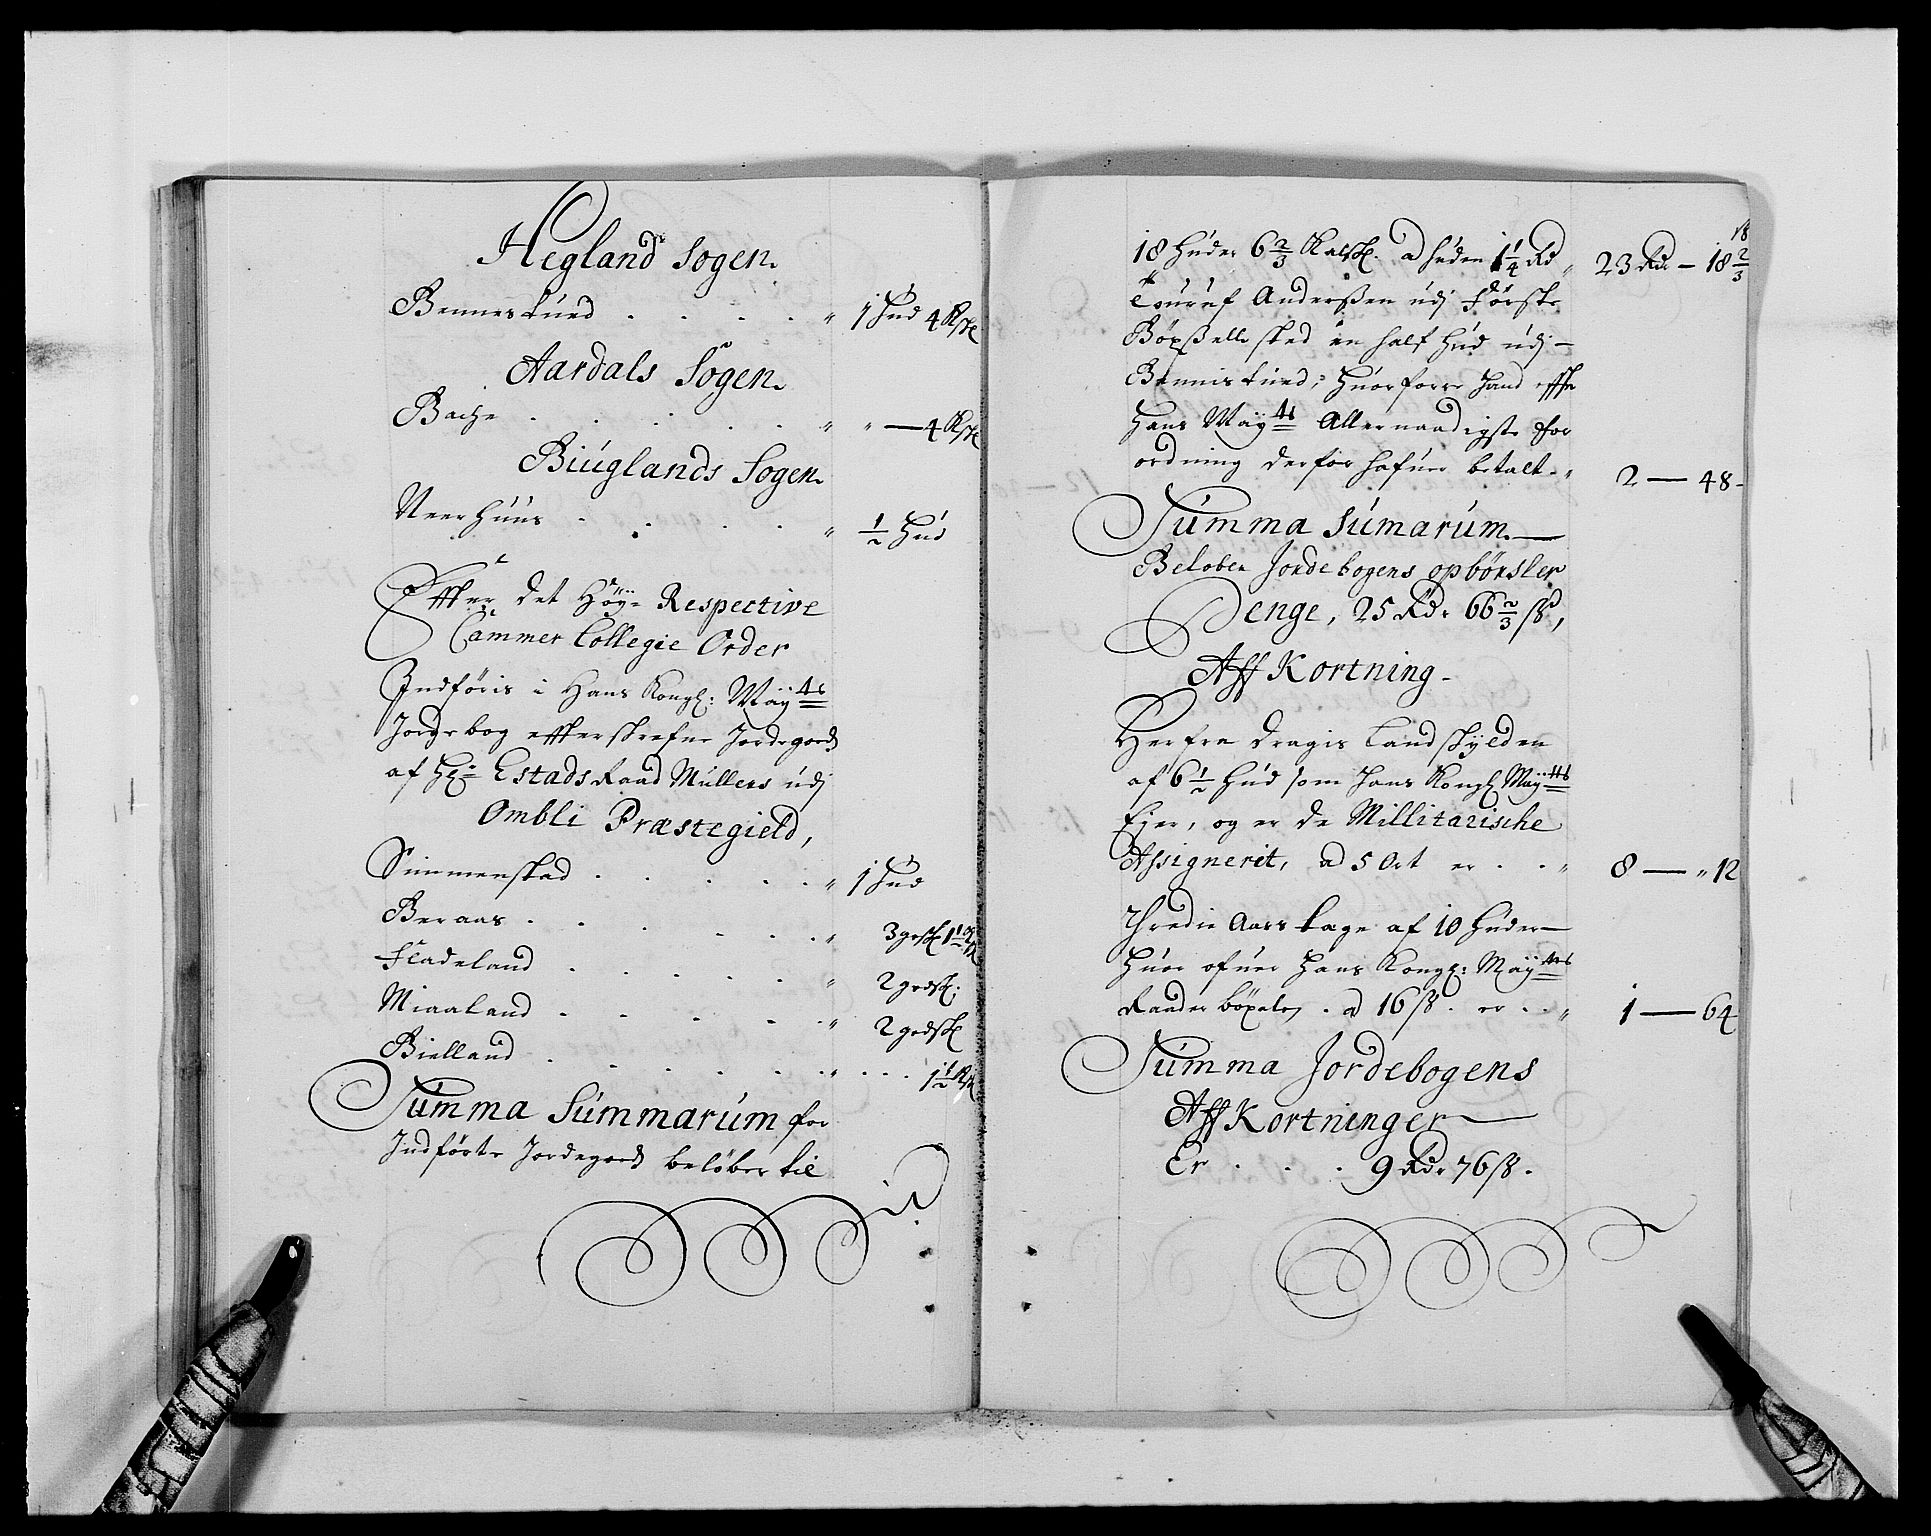 Hegland Sogen.
Bennestued . . . . " 1 Hud 4 Kßk
Aardals Sogen.
Bache . . . . . " " — 4 Kßk
Biuglands Sogen.
Neerhuus . . . . " ½ Hud
Effter det Höy= Respective
Cammer Collegie Order
Indföris i Hans Kongl: Mayts
Jordebog effterskrefne Jordegods
af Hr= Estads Raad Müllers udj
Ombli Præstegield,
Simmenstad . . . . . " 1 Hud
Beraas . . . . . " 3 grsk 1½
Fladeland . . . . " 2 grdsk:
Miaaland . . . . . " 2 grdsk
Bielland . . . . . . " . . . 1½ Kßk
Summa Summarum for
Indförte Jordegods belöber til
18
18 Huder 6⅔ Kalfsk. a huden 1¼ Rd " 23 Rdr — 18⅔
Andersßen udj Förste
Böxßell sted en half Hud udj —
Bennistued, huorforre hand effter
Hans Mayts Allernaadigste for
ordning derfor hafuer betalt . " 2 — 48 -
Summa Sumarum. —
Belober Jordebogens opbörsler
Penge, 25 Rdr 66⅔ ß,
Aff Kortning -
Herfra dragis Landskylden
af 6½ Hud som Hans Kongl Mayts
Eier, og er de Millitarische
Assignerit, ad 5 Ort er . . " 8 — " 12
Tredie Aars tage af 10 Huder —
Huor ofuer Hans Kongl: Mayts
Raader böxelen . a 16 ß . er . . " 1 — 64
Summa Jordebogens
Aff Kortninger —
Er . . . 9 Rdr 76 ß .